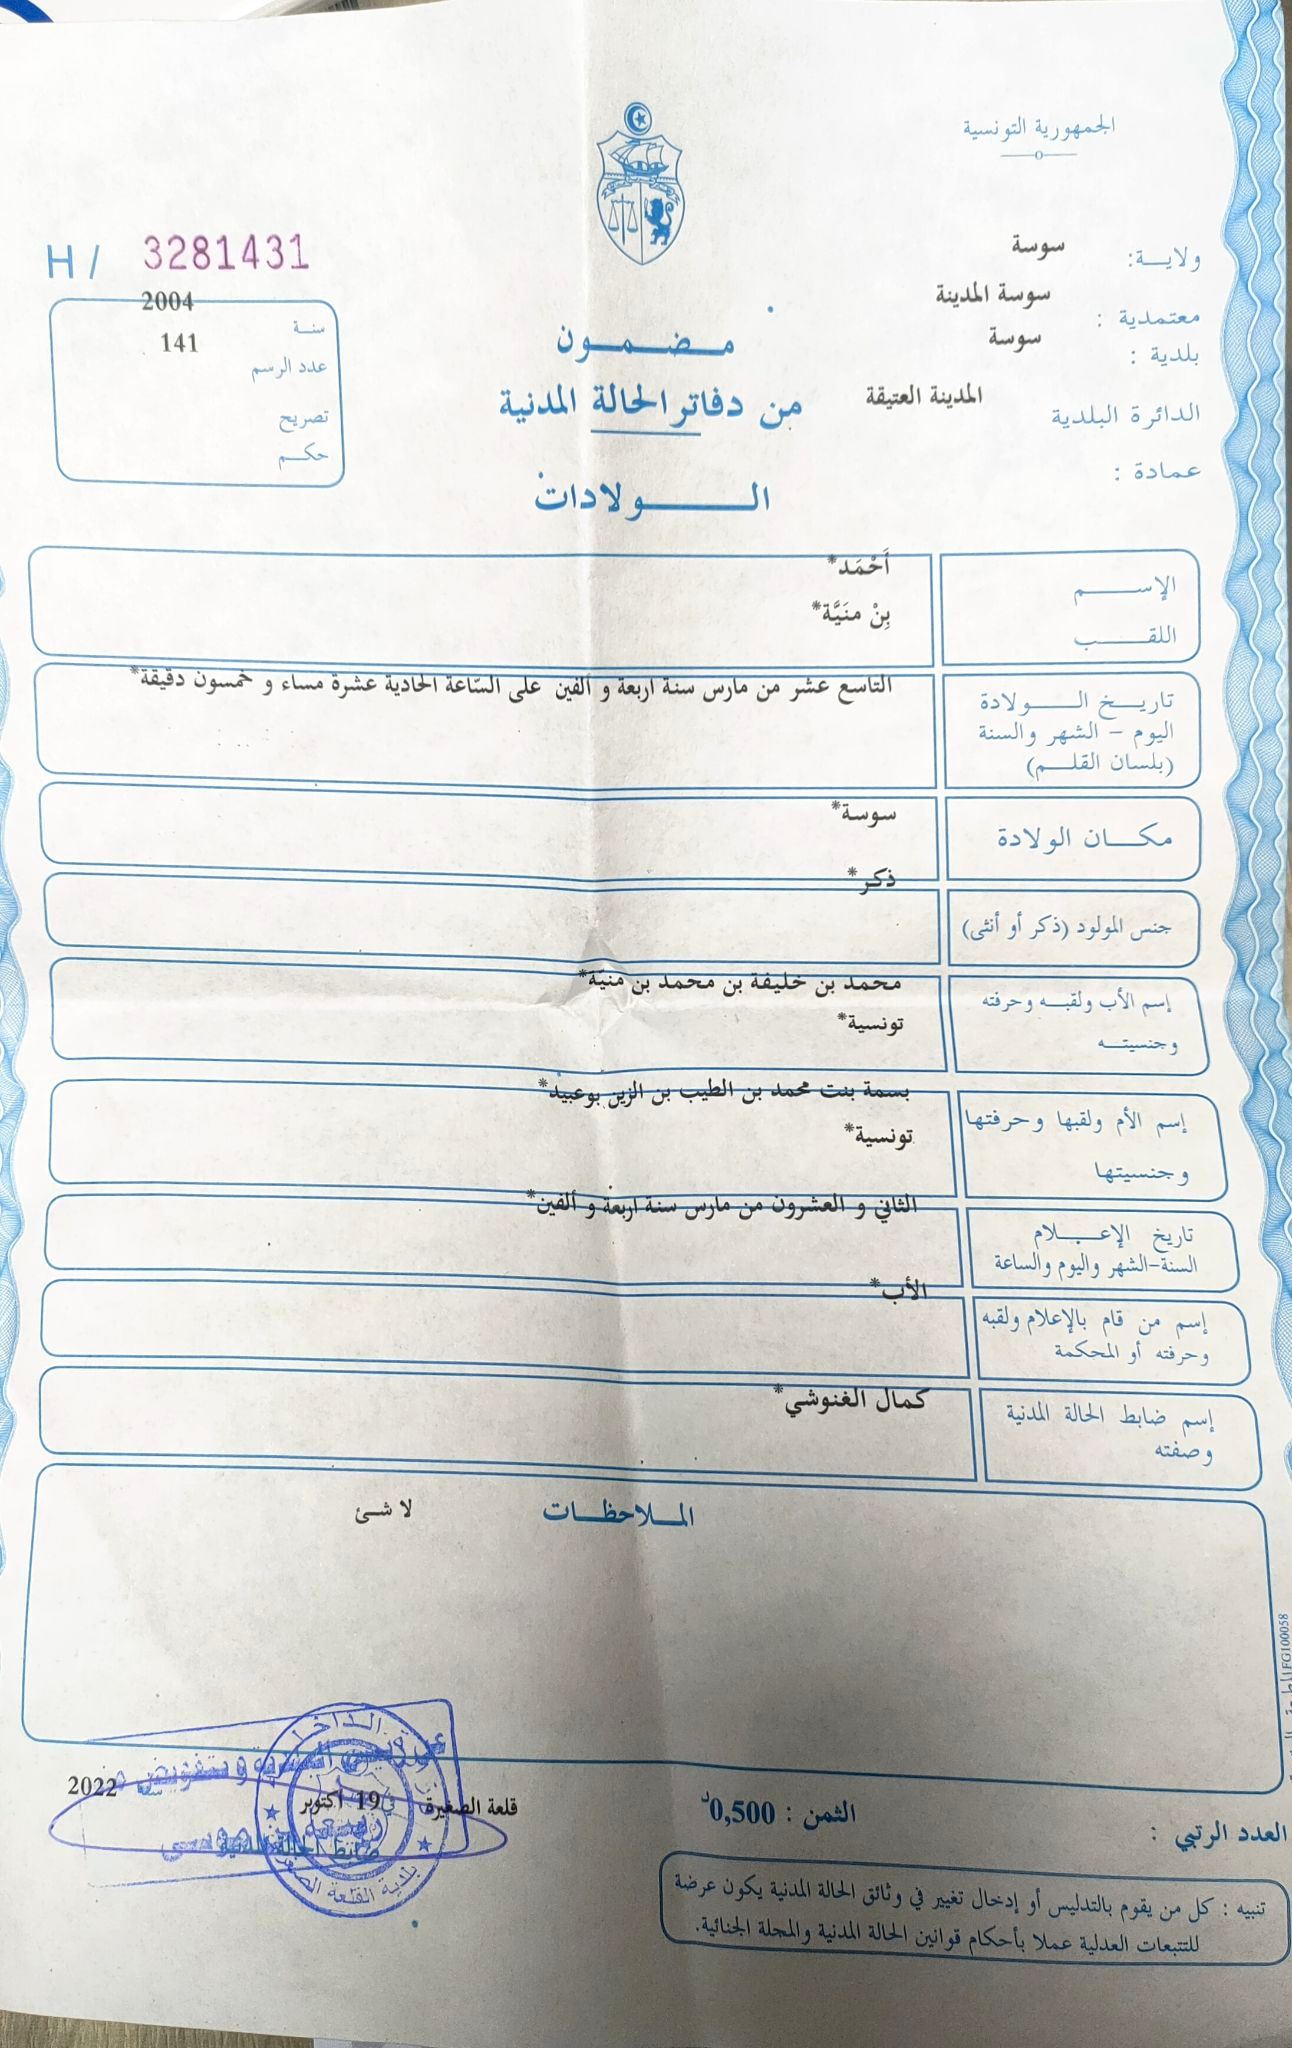 الجمهورية التونسية
ولاية: سوسة
معتمدية : سوسة المدينة
بلدية : سوسة
الدائرة البلدية المدينة العتيقة
عمادة :
H / 3281431
سنة 2004
عدد الرسم 141
تصريح
حكم
مضمون
من دفاتر الحالة المدنية
الولادات
الإسم أَحْمَد*
اللقب بِنْ منَيَّة*
تاريخ الولادة التاسع عشر من مارس سنة اربعة و ألفين على السّاعة الحادية عشرة مساء و خمسون دقيقة*
اليوم - الشهر والسنة
(بلسان القلم)
مكان الولادة سوسة*
جنس المولود (ذكر أو أنثى) ذكر*
إسم الأب ولقبه وحرفته محمد بن خليفة بن محمد بن منيّة*
وجنسيته تونسية*
إسم الأم ولقبها وحرفتها بسمة بنت محمد بن الطيب بن الزين بوعبيد*
وجنسيتها تونسية*
تاريخ الإعلام الثاني و العشرون من مارس سنة اربعة و ألفين*
السنة-الشهر واليوم والساعة
إسم من قام بالإعلام ولقبه الأب*
وحرفته أو المحكمة
إسم ضابط الحالة المدنية كمال الغنوشي*
وصفته
الملاحظات لا شئ
قلعة الصغيرة في 19 أكتوبر سنة 2022
ضابط الحالة المدنية
بلدية القلعة الصغرى
العدد الرتبي :
الثمن : 0,500د
تنبيه : كل من يقوم بالتدليس أو إدخال تغيير في وثائق الحالة المدنية يكون عرضة
للتتبعات العدلية عملا بأحكام قوانين الحالة المدنية والمجلة الجنائية.
FG100058